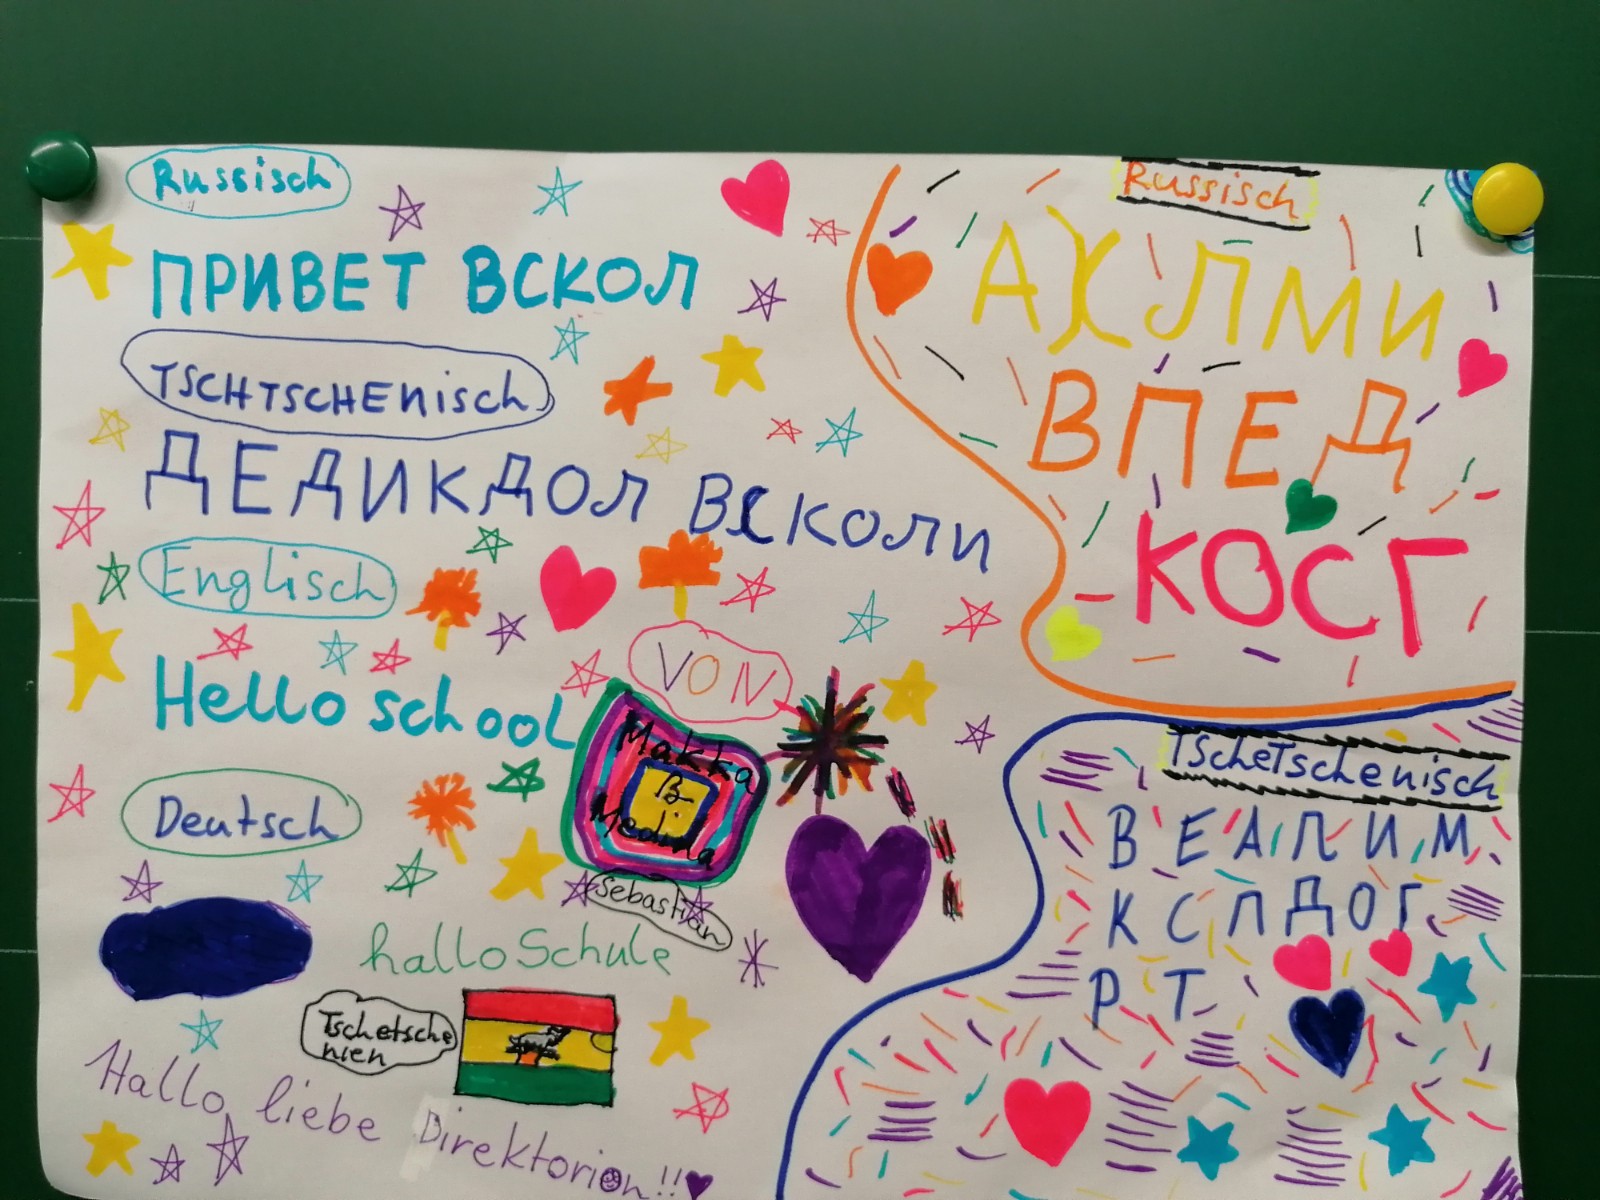 Russisch
ПРИВЕТ ВСКОЛ
TSCHTSCHEnisch
ДЕДИКДОЛ ВСКОЛИ
Englisch
Hello school
VON
Makka
B.
Medina
Sebastian
Deutsch
hallo Schule
Tschetsche
nien
Hallo, liebe Direktorion!!
Russisch
АХЛМИ
ВПЕД
КОСГ
Tschetschenisch
В Е А П И М
К С Л Д О Г
Р Т